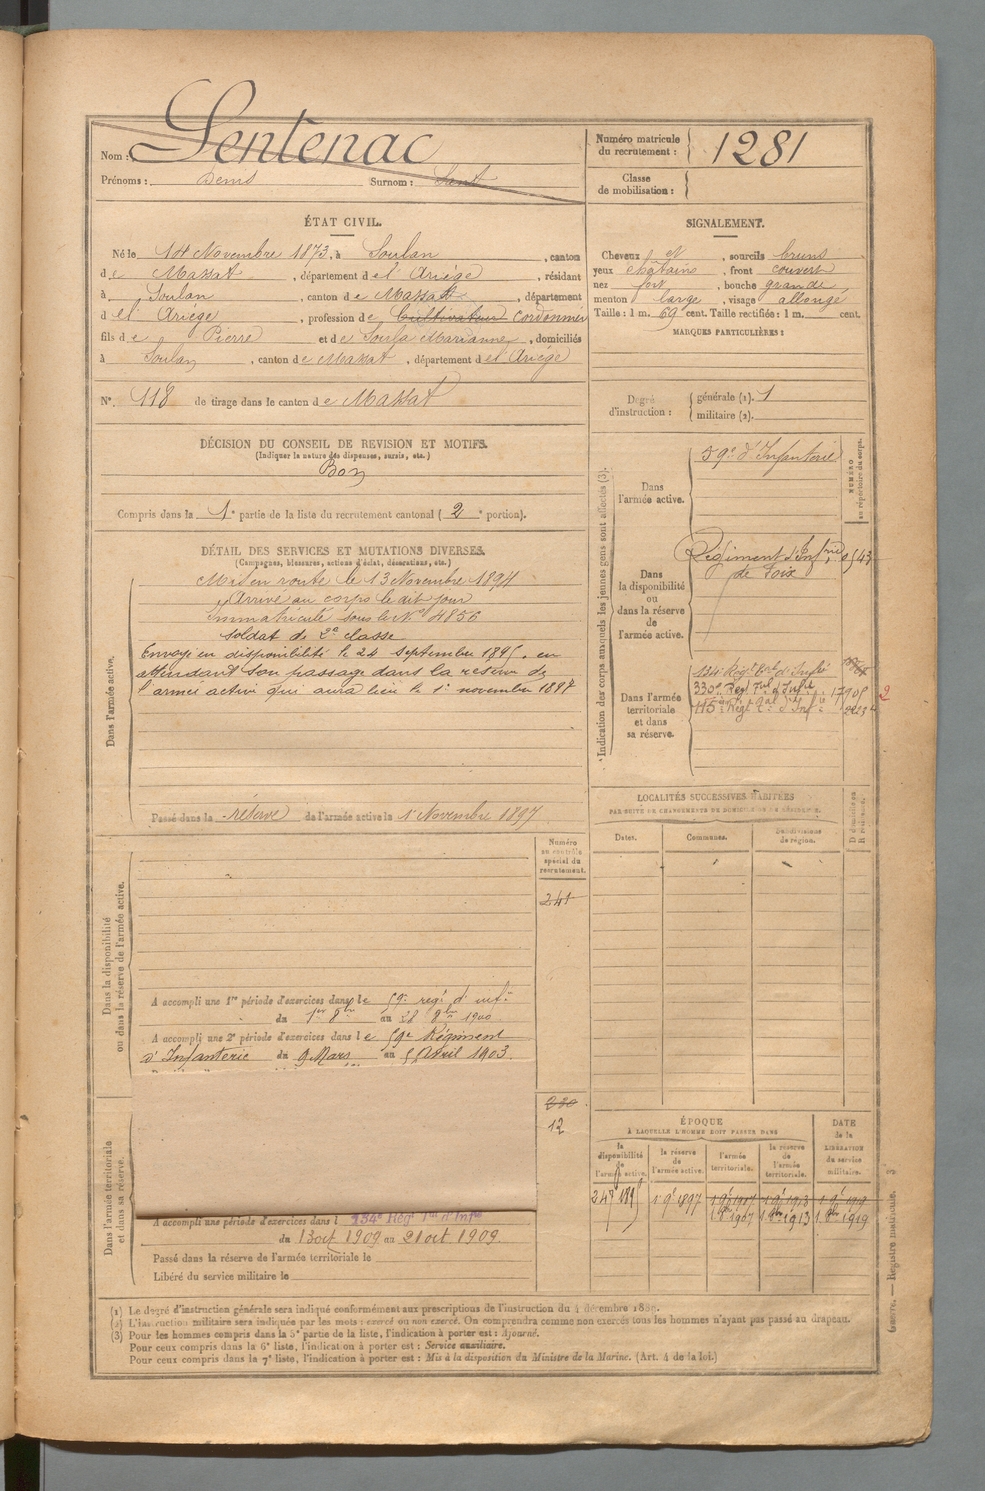 Nom : Sentenac
Prénoms : Denis Surnom :
Numéro matricule du recrutement : 1281
Classe de mobilisation :
ÉTAT CIVIL.
Né le 14 Novembre 1873, à Soulan, canton
de Massat, département de l'Ariège, résidant
à Soulan, canton de Massat, département
de l'Ariège, profession de Cultivateur Cordonnier
fils de Pierre et de Soula Marianne, domiciliés
à Soulan, canton de Massat, département de l'Ariège
N° 118 de tirage dans le canton de Massat
SIGNALEMENT.
Cheveux et, sourcils bruns
yeux châtains, front couvert
nez fort, bouche grande
menton large, visage allongé
Taille : 1 m. 69 cent. Taille rectifiée : 1 m. cent.
MARQUES PARTICULIÈRES :
Degré d'instruction : générale (1). 1
militaire (2).
DÉCISION DU CONSEIL DE REVISION ET MOTIFS.
(Indiquer la nature des dispenses, sursis, etc.)
Bon
Compris dans la 1e partie de la liste du recrutement cantonal (2e portion).
DÉTAIL DES SERVICES ET MUTATIONS DIVERSES.
(Campagnes, blessures, actions d'éclat, décorations, etc.)
Dans l'armée active.
Mis en route le 13 Novembre 1894
Arrivé au corps le dit jour
Immatriculé sous le N° 4856
Soldat de 2e classe
Envoyé en disponibilité le 24 septembre 1895, en
attendant son passage dans la réserve de
l'armée active qui aura lieu le 1er novembre 1897
Passé dans la réserve de l'armée active le 1er Novembre 1897
Indication des corps auxquels les jeunes gens sont affectés (3).
NUMÉRO au répertoire du corps.
Dans l'armée active.
59e d'Infanterie
Dans la disponibilité ou dans la réserve de l'armée active.
Régiment d'Infrie
de Foix
0543
Dans l'armée territoriale et dans sa réserve.
134e Régt Tal d'Infie
330e Régt Tal d'Infie 17908
2
115e Régt Tal d'Infie
LOCALITÉS SUCCESSIVES HABITÉES
PAR SUITE DE CHANGEMENTS DE DOMICILE OU DE RÉSIDENCE.
Dates. Communes. Subdivisions de région. D domicile ou R résidence.
Dans la disponibilité ou dans la réserve de l'armée active.
Numéro au contrôle spécial du recrutement.
241
A accompli une 1re période d'exercices dans le 59e régt d'infie
du 1er 8bre au 28 8bre 1900
A accompli une 2e période d'exercices dans le 59e Régiment
d'Infanterie du 9 Mars au 5 Avril 1903
Dans l'armée territoriale et dans sa réserve.
12
A accompli une période d'exercices dans l 134e Régt Tal d'Infie
du 13 oct 1909 au 21 oct 1909
Passé dans la réserve de l'armée territoriale le
Libéré du service militaire le
ÉPOQUE
À LAQUELLE L'HOMME DOIT PASSER DANS
la disponibilité de l'armée active. la réserve de l'armée active. l'armée territoriale. la réserve de l'armée territoriale.
DATE de la LIBÉRATION du service militaire.
1 9bre 1897 1 9bre 1907 1 9bre 1913 1 9bre 1919
1 8bre 1907 1 8bre 1913 1 8bre 1919
(1) Le degré d'instruction générale sera indiqué conformément aux prescriptions de l'instruction du 4 décembre 1889.
(2) L'instruction militaire sera indiquée par les mots : exercé ou non exercé. On comprendra comme non exercés tous les hommes n'ayant pas passé au drapeau.
(3) Pour les hommes compris dans la 5e partie de la liste, l'indication à porter est : Ajourné.
Pour ceux compris dans la 6e liste, l'indication à porter est : Service auxiliaire.
Pour ceux compris dans la 7e liste, l'indication à porter est : Mis à la disposition du Ministre de la Marine. (Art. 4 de la loi.)
Guerre. — Registre matricule. 3